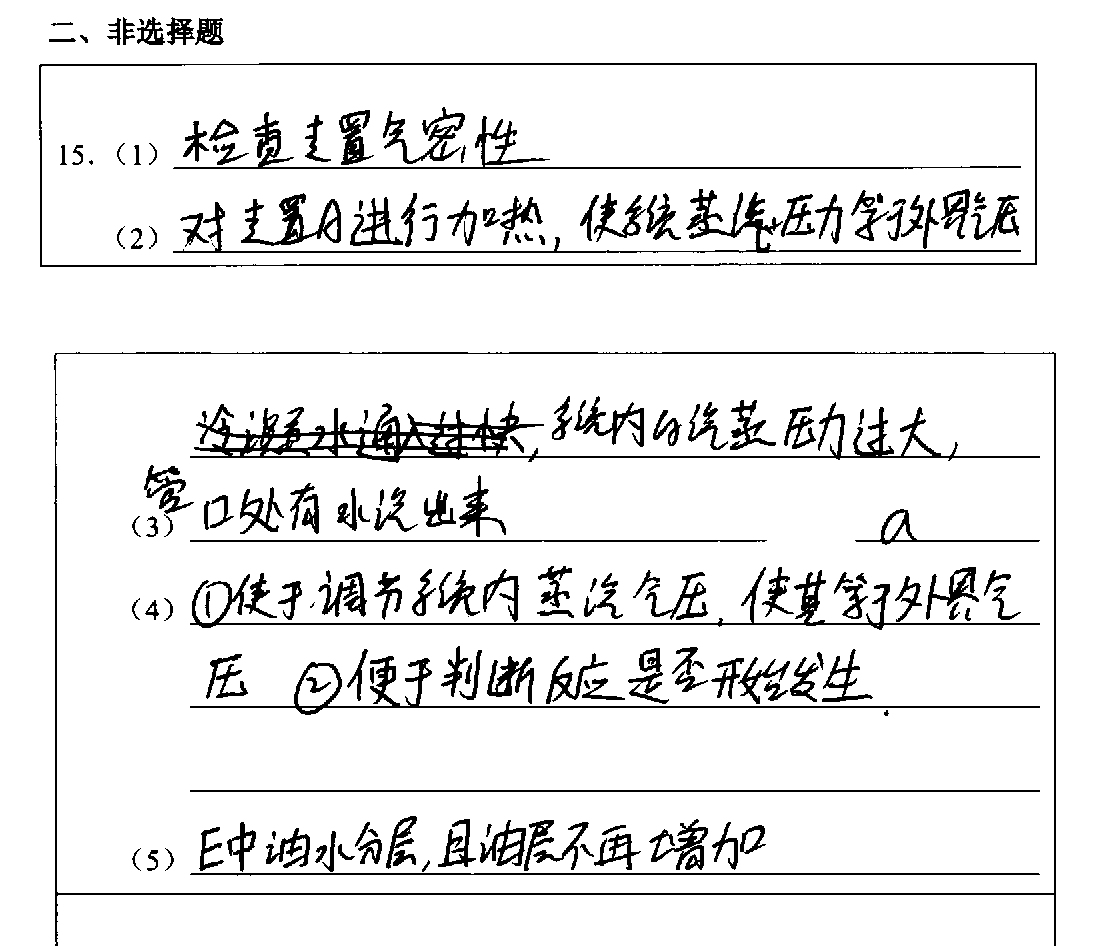 二、非选择题
15.（1）检查装置气密性
（2）对装置A进行加热，使系统蒸汽压力等于外界气压
冷凝水通入过快，系统内的汽蒸压力过大，
管
（3）口处有水汽出来 a
（4）①便于调节系统内蒸汽气压，使其等于外界气
压 ②便于判断反应是否开始发生.
（5）E中油水分层，且油层不再增加